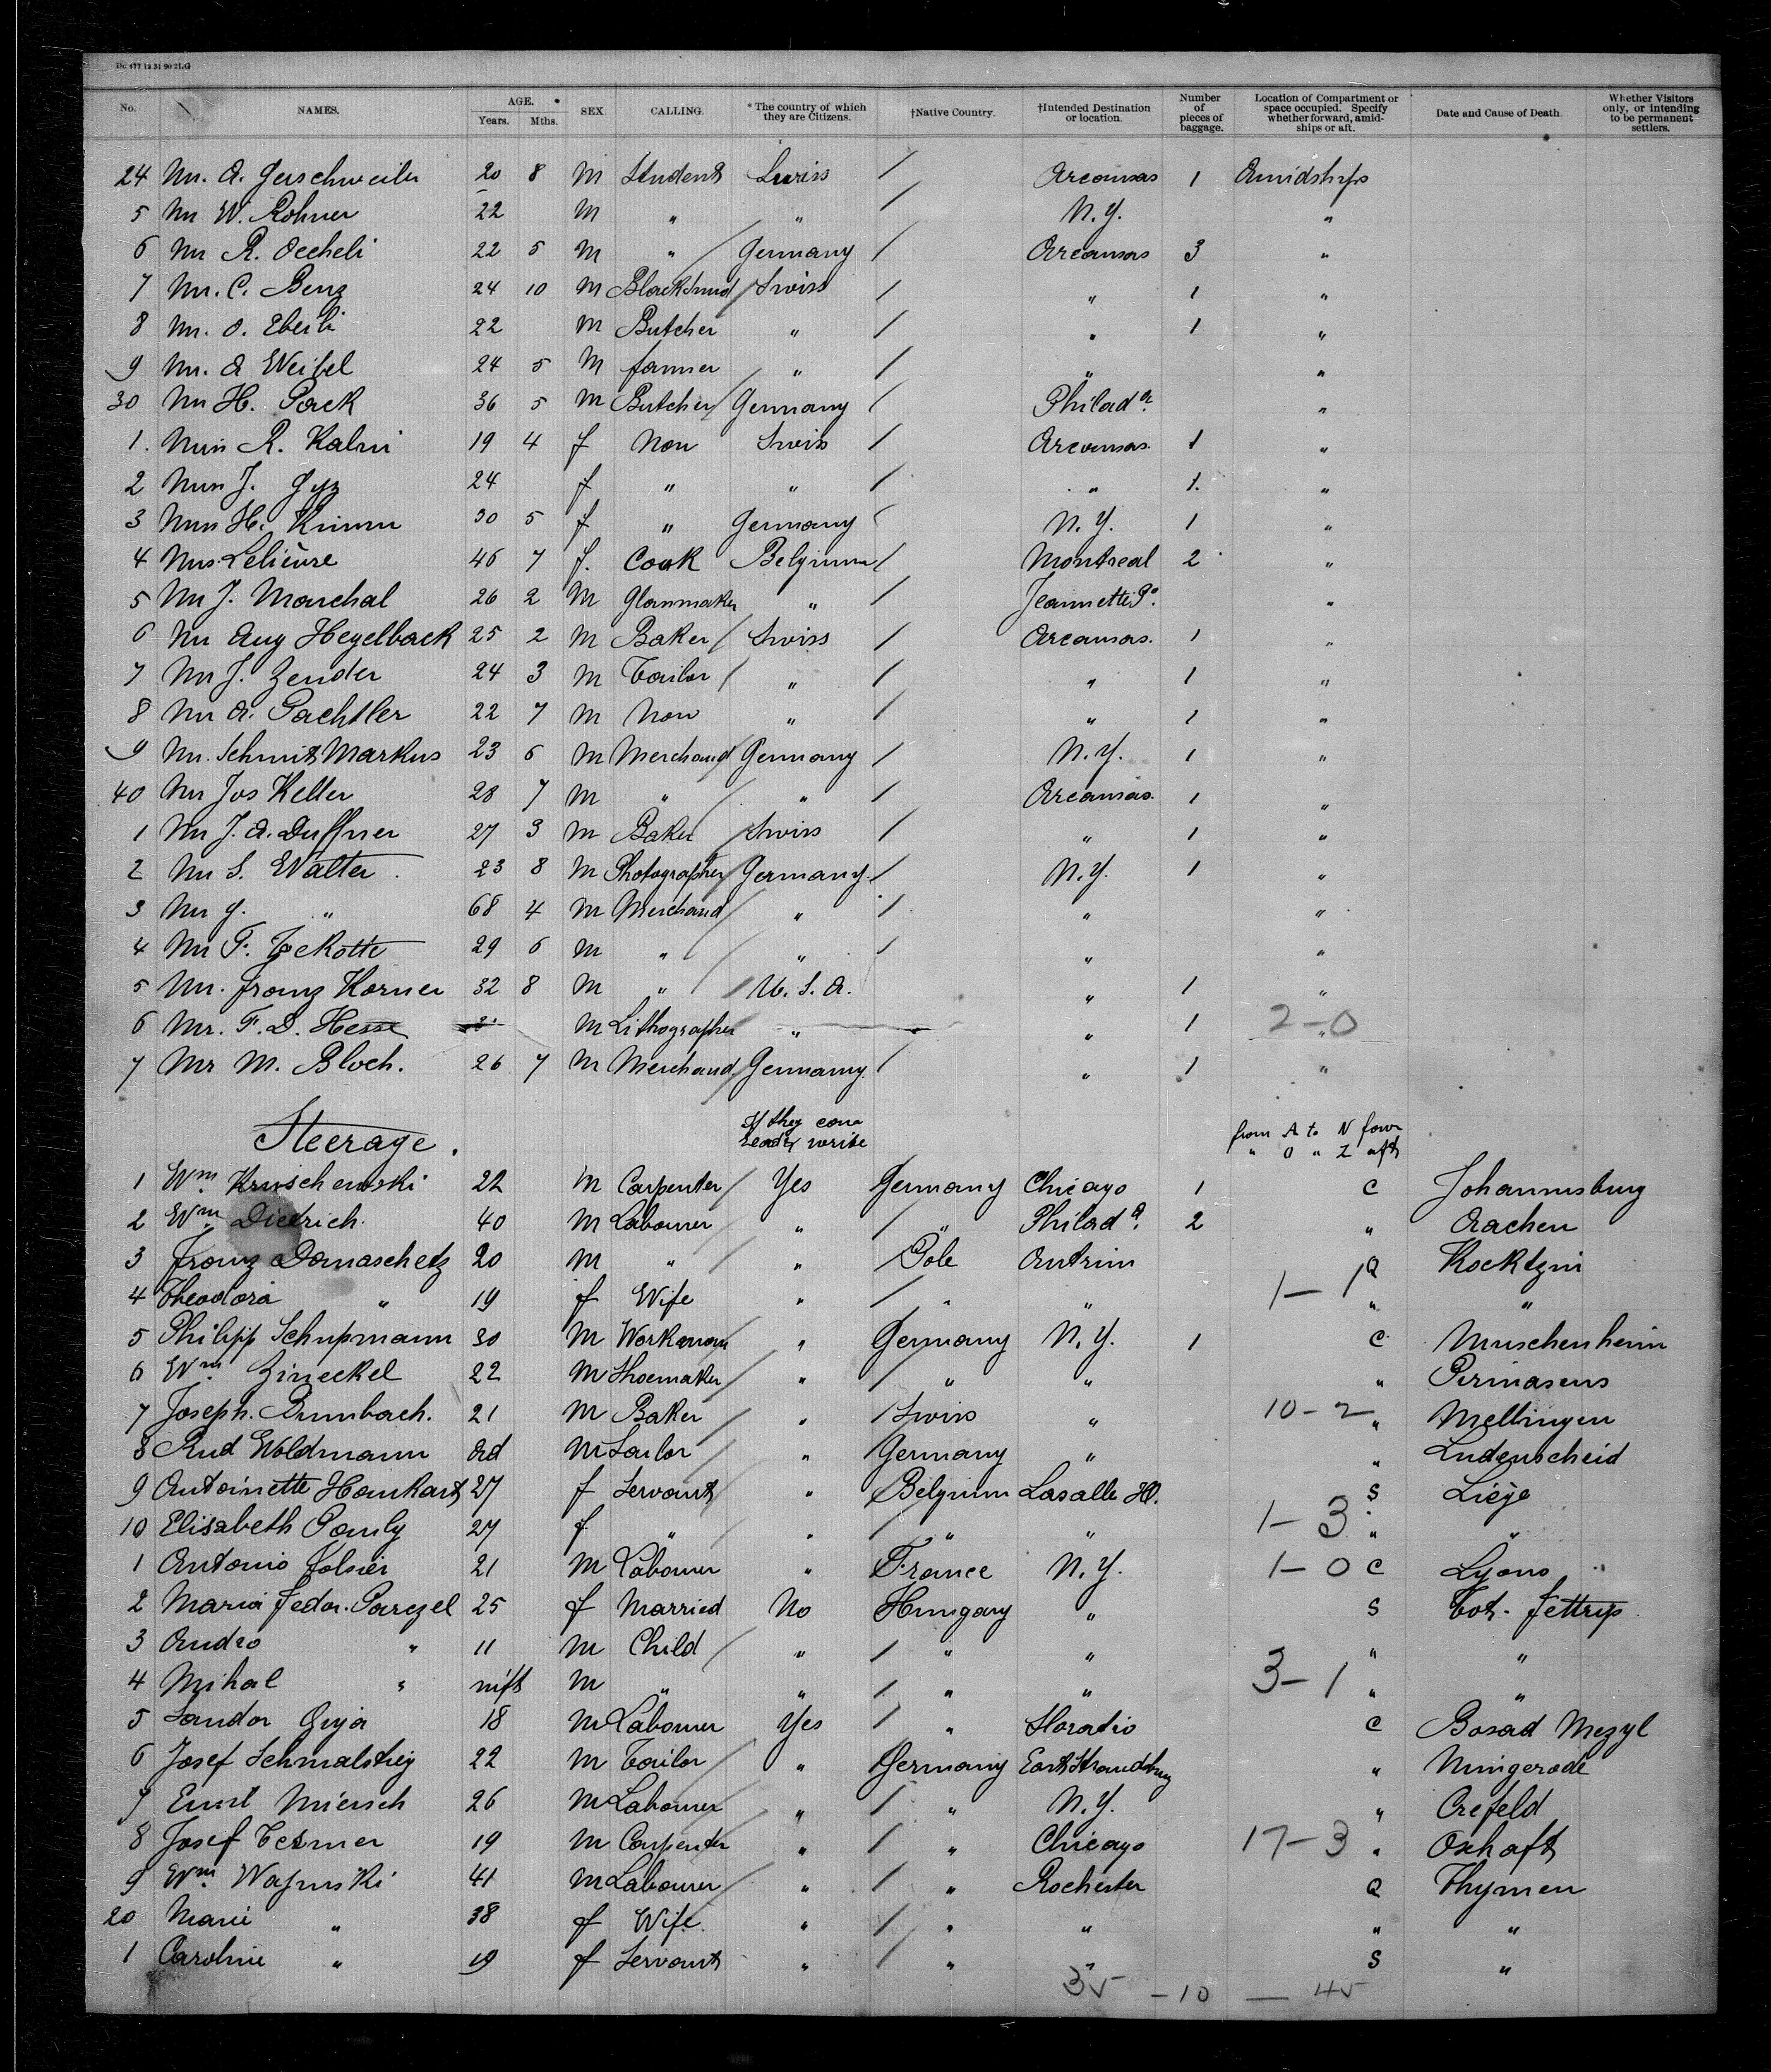 No. NAMES. AGE. Years. Mths. SEX. CALLING. * The country of which they are Citizens. †Native Country. †Intended Destination or location. Number of pieces of baggage. Location of Compartment or space occupied. Specify whether forward, amidships or aft. Date and Cause of Death. Whether Visitors only, or intending to be permanent settlers.
24 Mr. A. Gerschweiler 20 8 M Student Swiss / Arcansas 1 Amidships
5 Mr W. Rohner 22 M " " / N.Y. "
6 Mr R. Oecheli 22 5 M " Germany / Arcansas 3 "
7 Mr. C. Benz 24 10 M Blacksmid Swiss / " 1 "
8 Mr. O. Eberli 22 M Butcher " / " 1 "
9 Mr. A Weibel 24 5 M farmer " / " "
30 Mr H. Pack 36 5 M Butcher Germany / Philada. "
1. Miss R. Kalmi 19 4 f Non Swiss / Arcansas. 1 "
2 Miss J. Gyz 24 f " " / " 1. "
3 Miss H. Krimm 30 5 f " Germany / N.Y. 1 "
4 Mrs. Lelièvre 46 7 f. Cook Belgium / Montreal 2 "
5 Mr J. Marchal 26 2 M Glasmaker " / Jeannette Pa. "
6 Mr Aug Hegelback 25 2 M Baker Swiss / Arcansas. 1 "
7 Mr J. Zender 24 3 M Tailor " / " 1 "
8 Mr A. Pachtler 22 7 M Non " / " 1 "
9 Mr. Schmits Markus 23 6 M Merchand Germany / N.Y. 1 "
40 Mr Jos Keller 28 7 M " " / Arcansas. 1 "
1 Mr J. A. Duffner 27 3 M Baker Swiss / " 1 "
2 Mr S. Walter. 23 8 M Photographer Germany. / N.Y. 1 "
3 Mr G. " 68 4 M Merchand " / " "
4 Mr F. TeKotte 29 6 M " " / " "
5 Mr. Franz Korner 32 8 M " U.S.A. " 1 "
6 Mr. F. D. Hesse M Lithographer " " 1 " 2-0
7 Mr M. Bloch. 26 7 M Merchand Germany. / " 1 "
Steerage. If they can read & write from A to N forw
" O " Z aft
1 Wm Kruschewski 22 M Carpenter Yes Germany Chicago 1 C Johannisburg
2 Wm Dietrich. 40 M Labourer " / " Philada. 2 " Aachen
3 Franz Domaschetz 20 M " " Pole Antrim Q Kocktzin
4 Theodora " 19 f Wife " / " " 1-1 " "
5 Philipp Schupmann 30 M Workman " Germany N.Y. 1 C Muschenheim
6 Wm Zineckel 22 M Shoemaker " / " " " Pirmasens
7 Joseph. Bumbach. 21 M Baker " / Swiss " 10-2 " Mellingen
8 Rud Woldmann ad M Sailor " Germany " " Ludenscheid
9 Antoinette Honkart 27 f Servant " Belgium Lasalle Ill. S Liège
10 Elisabeth Pauly 27 f " " / " " 1-3 " "
1 Antonio 21 M Labourer " France N.Y. 1-0 C Lyons
2 Maria Fedor. Parezel 25 f Married No Hungary " S Tot-
3 Andro " 11 M Child " / " " " "
4 Mihal " inft M " " / " " 3-1 " "
5 Sandor Guja 18 M Labourer Yes / " Horatio C Bosad Mezyl
6 Josef Schmalstieg 22 M Tailor " Germany East Stroudsburg " Mingerode
7 Ernst Miersch 26 M Labourer " / " N.Y. " Crefeld
8 Josef Tesmer 19 M Carpenter " / " Chicago 17-3 " Oxhaft
9 Wm. 41 M Labourer " / " Rochester Q Thymen
20 Marie " 38 f Wife. " / " " " "
1 Caroline " 19 f Servant " / " " S "
35 - 10 — 45